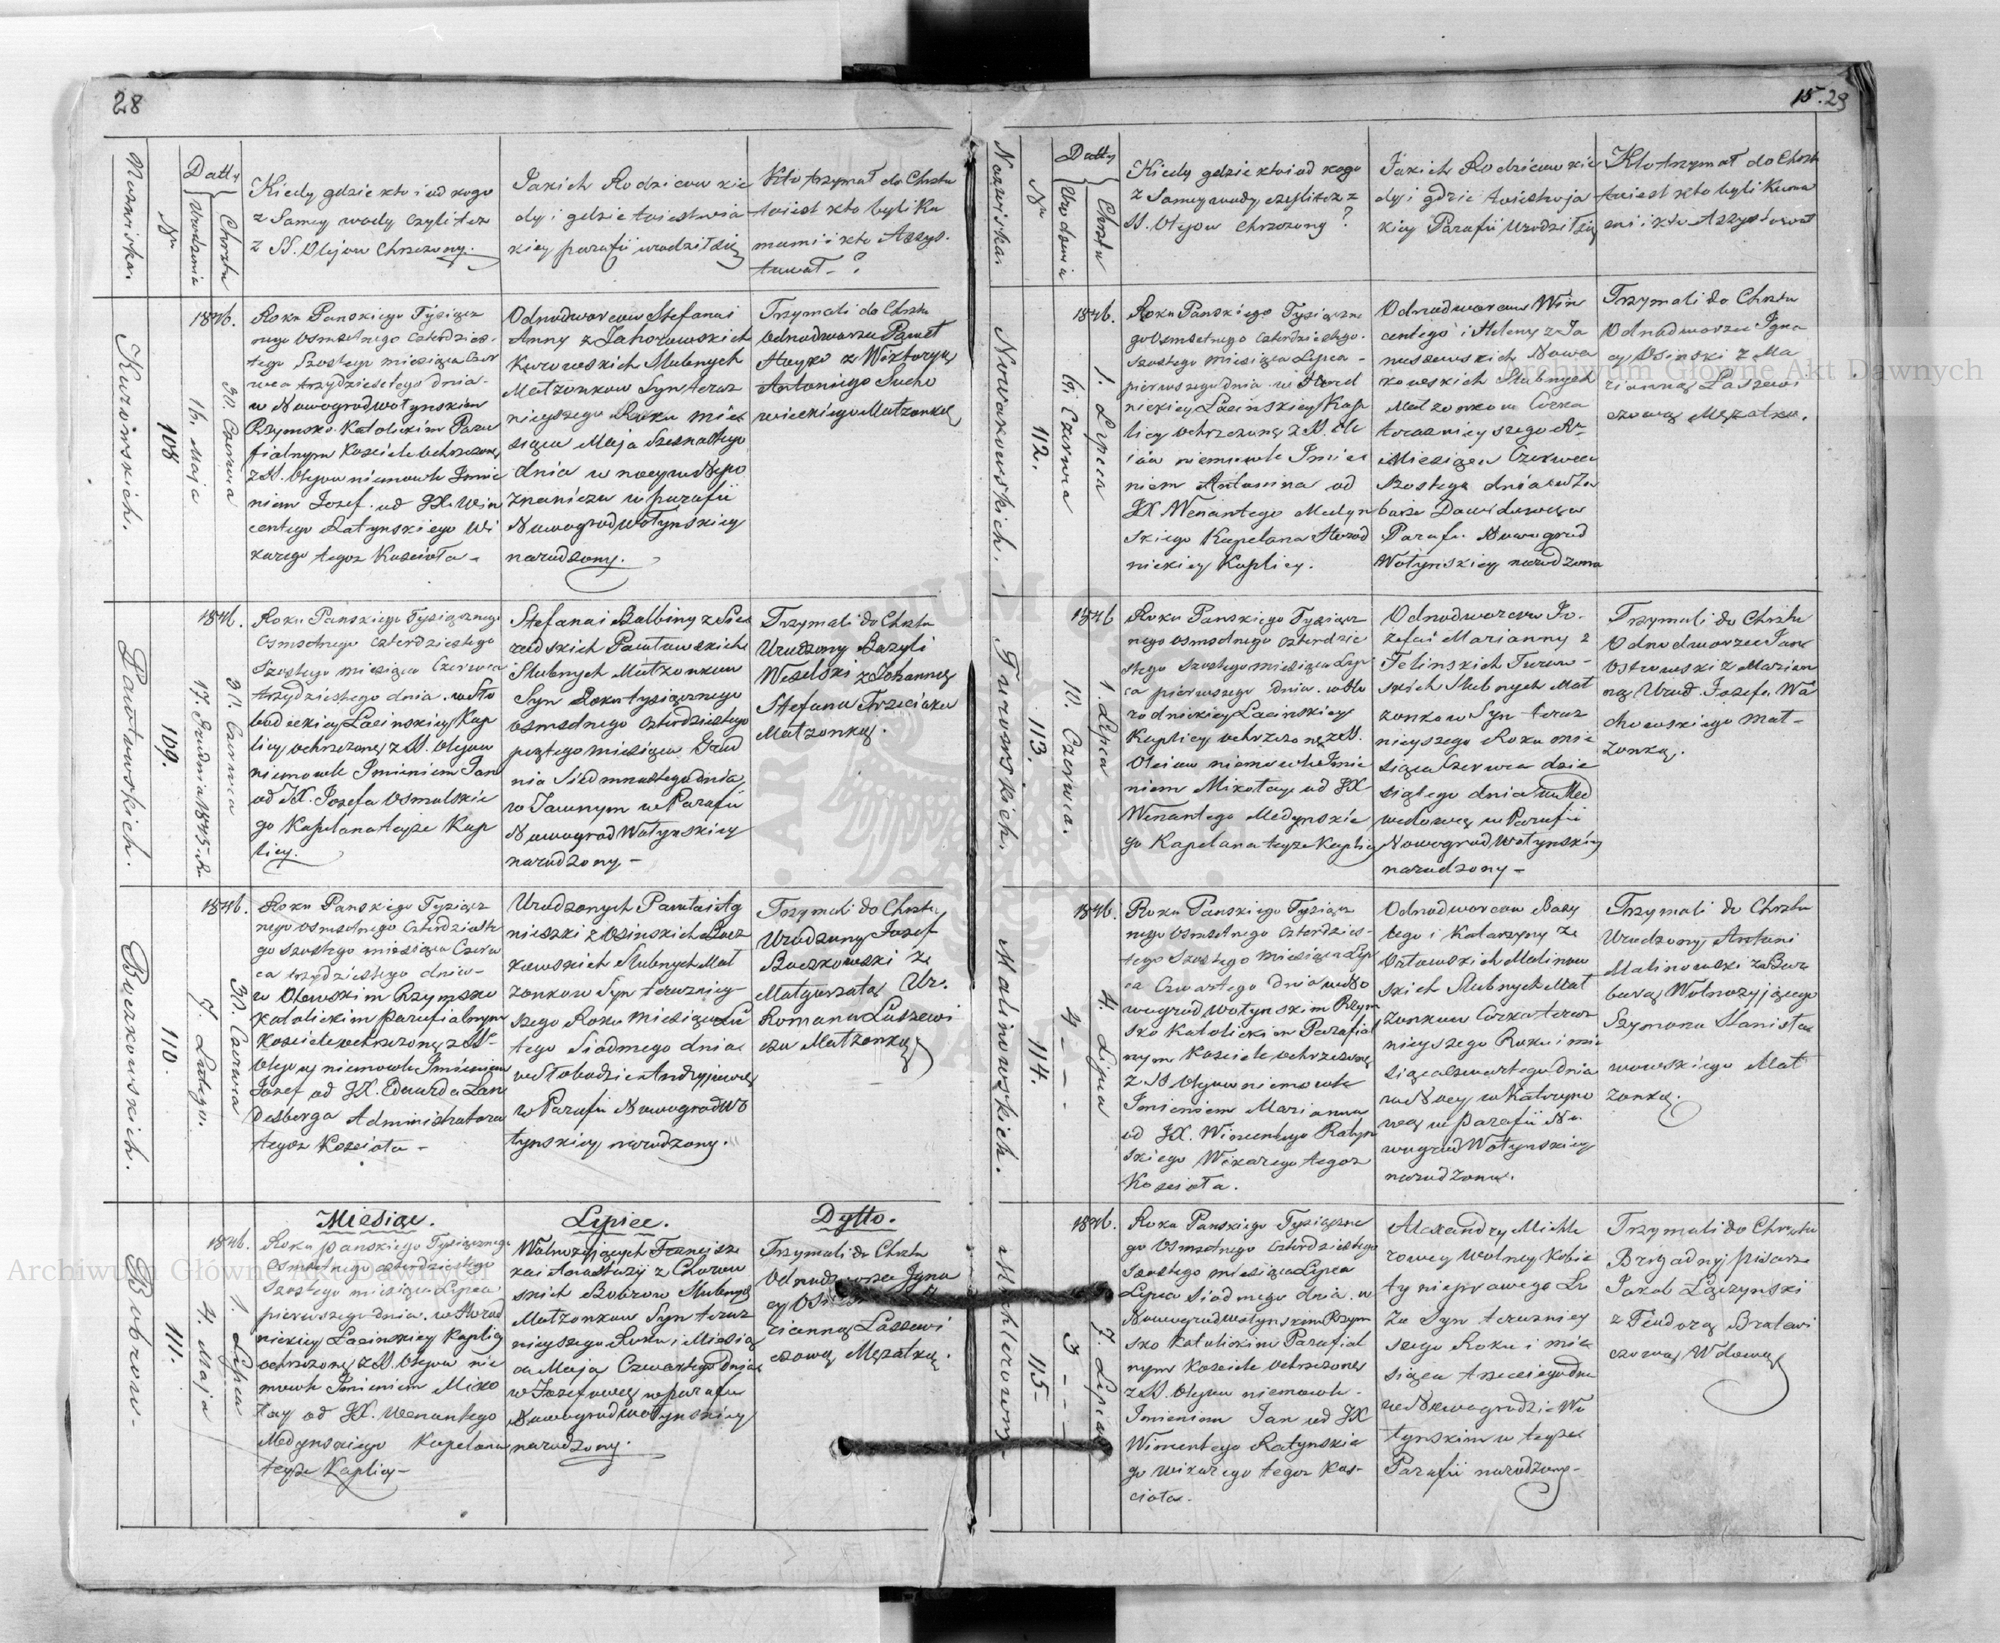 28
Nazwiska.
Nru
Datty
Urodzenia
Chrztu
Kiedy gdzie kto i od kogo
z Samey wody czyli tez
z SS. Olejow Chrzczony.
Jakich Rodzicow kie
dy i gdzie w miescie ia
kiey parafii urodził się
Kto trzymał do Chrztu
kto byli Ku
mami i kto Assys-
tował - ?
Kurowskich.
108
1846.
16. Maja
30. Czerwca
Roku Panskiego Tysiącz
nego osmsetnego czterdzies-
tego Szostego miesiąca Czer
wca trzydziestego dnia.
w Nowogradwołynskim
Rzymsko-Katolickim Para
fialnym Kosciele ochrzczony
z SS. Olejow niemowle Imie
niem Jozef. od JX. Win
centego Ratynskiego Wi
karego tegoz Koscioła -
Odnodworcow Stefana i
Anny z Jahorowskich
Kurowskich Slubnych
Małzonkow Syn teraz
nieyszego Roku mie
siąca Maja Szesnastego
dnia w nocy w Nepo
znaniczu w parafii
Nowogradwołynskiey
narodzony.
Trzymali do Chrztu
Odnodworzec Paweł
Hayko z Wiktoryą
Antoniego Sucho
wieckiego Małzonką
Pawłowskich.
109.
1846.
17. Grudnia 1845. R.
30. Czerwca
Roku Panskiego Tysiącznego
Osmsetnego czterdziestego
Szostego miesiąca Czerwca
trzydziestego dnia. w Sło
bodzckiey Łacinskiey Kap
licy ochrzczony z SS. Olejow
niemowle Imieniem Jan
od JX. Jozefa Osmolskie
go Kapelana teyze Kap
licy.
Stefana i Balbiny z Sie
radskich Pawłowskich
Slubnych Małzonkow
Syn Roku tysiącznego
osmsetnego czterdziestego
piątego miesiąca Grud
nia Siedmnastego dnia
w Jawnym w Parafii
Nowogradwołynskiey
narodzony -
Trzymali do Chrztu
Urodzony Bazyli
Weselski z Johanną
Stefana Trzeciaka
Małzonką.
Baczkowskich.
110.
1846.
7. Lutego.
30. Czerwca
Roku Panskiego Tysiącz
nego osmsetnego czterdzieste
go szostego miesiąca Czerw
ca trzydziestego dnia -
w Olewskim Rzymsko
Katolickim parafialnym
Kosciele ochrzczony z SS-
Olejow niemowle Imieniem
Jozef od JX. Edwarda Lan
desberga Administratora
tegoz Koscioła -
Urodzonych Pawła i Ag
nieszki z Osinskich Bacz
kowskich Slubnych Mał
zonkow Syn terazniey
szego Roku miesiąca Lu
tego Siodmego dnia
w Słobodzie Andryjewcy
w Parafii Nowogradwo
łynskiey narodzony.
Trzymali do Chrztu
Urodzony Jozef
Baczkowski z
Małgorzatą Ur.
Romana Łaszewi
cza Małzonką
Miesiąc.
Lipiec.
Dytto.
Bobrow -
111.
1846.
4. Maja
1. Lipca
Roku panskiego Tysiącznego
osmsetnego czterdziestego
Szostego miesiąca Lipca
pierwszego dnia. w Horod
nickiey Łacinskiey Kaplicy
ochrzczony z SS. Olejow nie
mowle Imieniem Miko
łay od JX. Wenantego
Medynskiego Kapelana
teyze Kaplicy -
Wolnozyjących Francisz
ka i Anastazyi z Chorow
skich Bobrow Slubnych
Małzonkow Syn teraz
nieyszego Roku i Miesią
ca Maja Czwartego dnia
w Jozefowcy w parafii
Nowogradwołynskiey
narodzony.
Trzymali do Chrztu
Odnodworzec Igna
cy Osinski z Ma
rianną Łaszewi
czową Męzatką.
15. 29
Nazwiska.
Nru
Datty
Urodzenia
Chrztu
Kiedy gdzie kto i od kogo
z Samey wody czyli tez z
SS. Olejow chrzczony ?
Jakich Rodzicow kie
dy i gdzie w miescie ja
kiey Parafii Urodził się
Kto trzymał do Chrztu
kto byli Kuma
mi i kto Assystował
Nowakowskich.
112.
1846.
6. Czerwca
1. Lipca
Roku Panskiego Tysiączne
go osmsetnego czterdziestego.
Szostego miesiąca Lipca -
pierwszego dnia w Horod
nickiey Łacinskiey Kap
licy ochrzczoną z SS. Ole
iow niemowle Imie
niem Antonina od
JX. Wenantego Medyn
skiego Kapelana Horod
nickiey Kaplicy.
Odnodworcow Win
centego i Heleny z Ja
nuszewskich Nowa
kowskich Slubnych
Małzonkow Corka
teraznieyszego Ro-
i Miesiąca Czerwca
Szostego dnia w Za
borze Dawidowcy w
Parafii Nowograd
Wołynskiey narodzona
Trzymali do Chrztu
Odnodworzec Igna
cy Osinski z Ma
rianną Łaszewi
czową Męzatką.
Turowskich.
113.
1846
10. Czerwca.
1. Lipca
Roku Panskiego Tysiącz
nego osmsetnego czterdzie
stego szostego miesiąca Lip
ca pierwszego dnia. w Ho
rodnickiey Łacinskiey
Kaplicy ochrzczony z SS.
Oleiow niemowle Imie
niem Mikołay od JX
Wenantego Medynskie
go Kapelana teyze Kaplicy
Odnodworcow Jo
zefa i Marianny z
Felinskich Turow-
skich Slubnych Mał
zonkow Syn teraz
nieyszego Roku mie
siąca Czerwca dzie
siątego dnia w Med
wedowcy w Parafii
Nowogradwołynskiey
narodzony -
Trzymali do Chrztu
Odnodworzec Jan
Ostrowski z Marian
ną Urod. Jozefa Wa
chowskiego Mał-
zonką.
Malinowskich.
114.
1846.
4 - - -
4. Lipca
Roku Panskiego Tysiącz
nego osmsetnego czterdzies-
tego Szostego miesiąca Lip
ca Czwartego dnia w No
wogradwołynskim Rzym
sko Katolickim Parafial
nym Kosciele ochrzczoną
z SS Olejow niemowle
Imieniem Marianna
od JX. Wincentego Ratyn
skiego Wikarego tegoz
Koscioła.
Odnodworcow Bazy
lego i Katarzyny z
Ostowskich Malinow
skich Slubnych Mał
zonkow Corka teraz
nieyszego Roku i mie
siąca czwartego dnia
w Nocy w Katryno
wcy w parafii No
wogradwołynskiey
narodzona.
Trzymali do Chrztu
Urodzony Antoni
Malinowski z Bar
barą Wolnozyjącego
Szymona Stanisła
wowskiego Mał
zonką.
Michlerowey -
115-
1846.
3 - - -
7. Lipca
Roku Panskiego Tysiączne
go osmsetnego czterdziestego
szostego miesiąca Lipca
Lipca siodmego dnia. w
Nowogradwołynskim Rzym
sko Katolickim Parafial
nym Kosciele ochrzczony
z SS. Olejow niemowle -
Imieniem Jan od JX
Wincentego Ratynskie
go wikarego tegoz Kos-
cioła.
Alexandry Michle
rowey Wolney Kobie
ty nieprawego Ło
za Syn terazniey
szego Roku i mie
siąca trzeciego dnia
w Nowogrodzie Wo
łynskim w teyze
Parafii narodzony -
Trzymali do Chrztu
Brygadny pisarz
Jakob Łączynski
z Teodorą Bratewi
czową Wdową
Archiwum Główne Akt Dawnych
Archiwum Główne Akt Dawnych